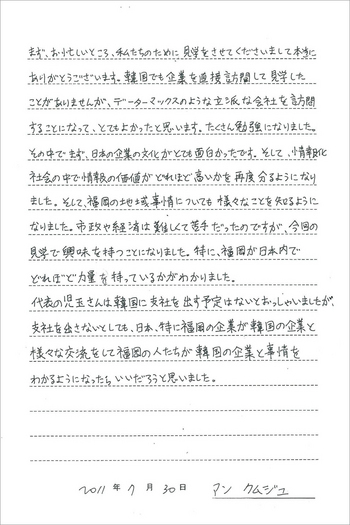 まず、お忙しいところ、私たちのために見学をさせてくださいまして本当に
ありがとうございます。韓国でも企業を直接訪問して見学した
ことがありませんが、データーマックスのような立派な会社を訪問
することになって、とてもよかったと思います。たくさん勉強になりました。
その中でまず、日本の企業の文化がとても面白かったです。そして、情報化
社会の中で情報の価値がどれほど高いかを再度分るようになり
ました。そして、福岡の地域事情についても様々なことを知るように
なりました。市政や経済は難しくて苦手だったのですが、今回の
見学で興味を持つことになりました。特に、福岡が日本内で
どれほど力量を持っているかがわかりました。
代表の児玉さんは韓国に支社を出す予定はないとおっしゃいましたが、
支社を出さないとしても、日本、特に福岡の企業が韓国の企業と
様々な交流をして福岡の人たちが韓国の企業と事情を
わかるようになったらいいだろうと思いました。
2011年 7月 30日 アン クムジュ